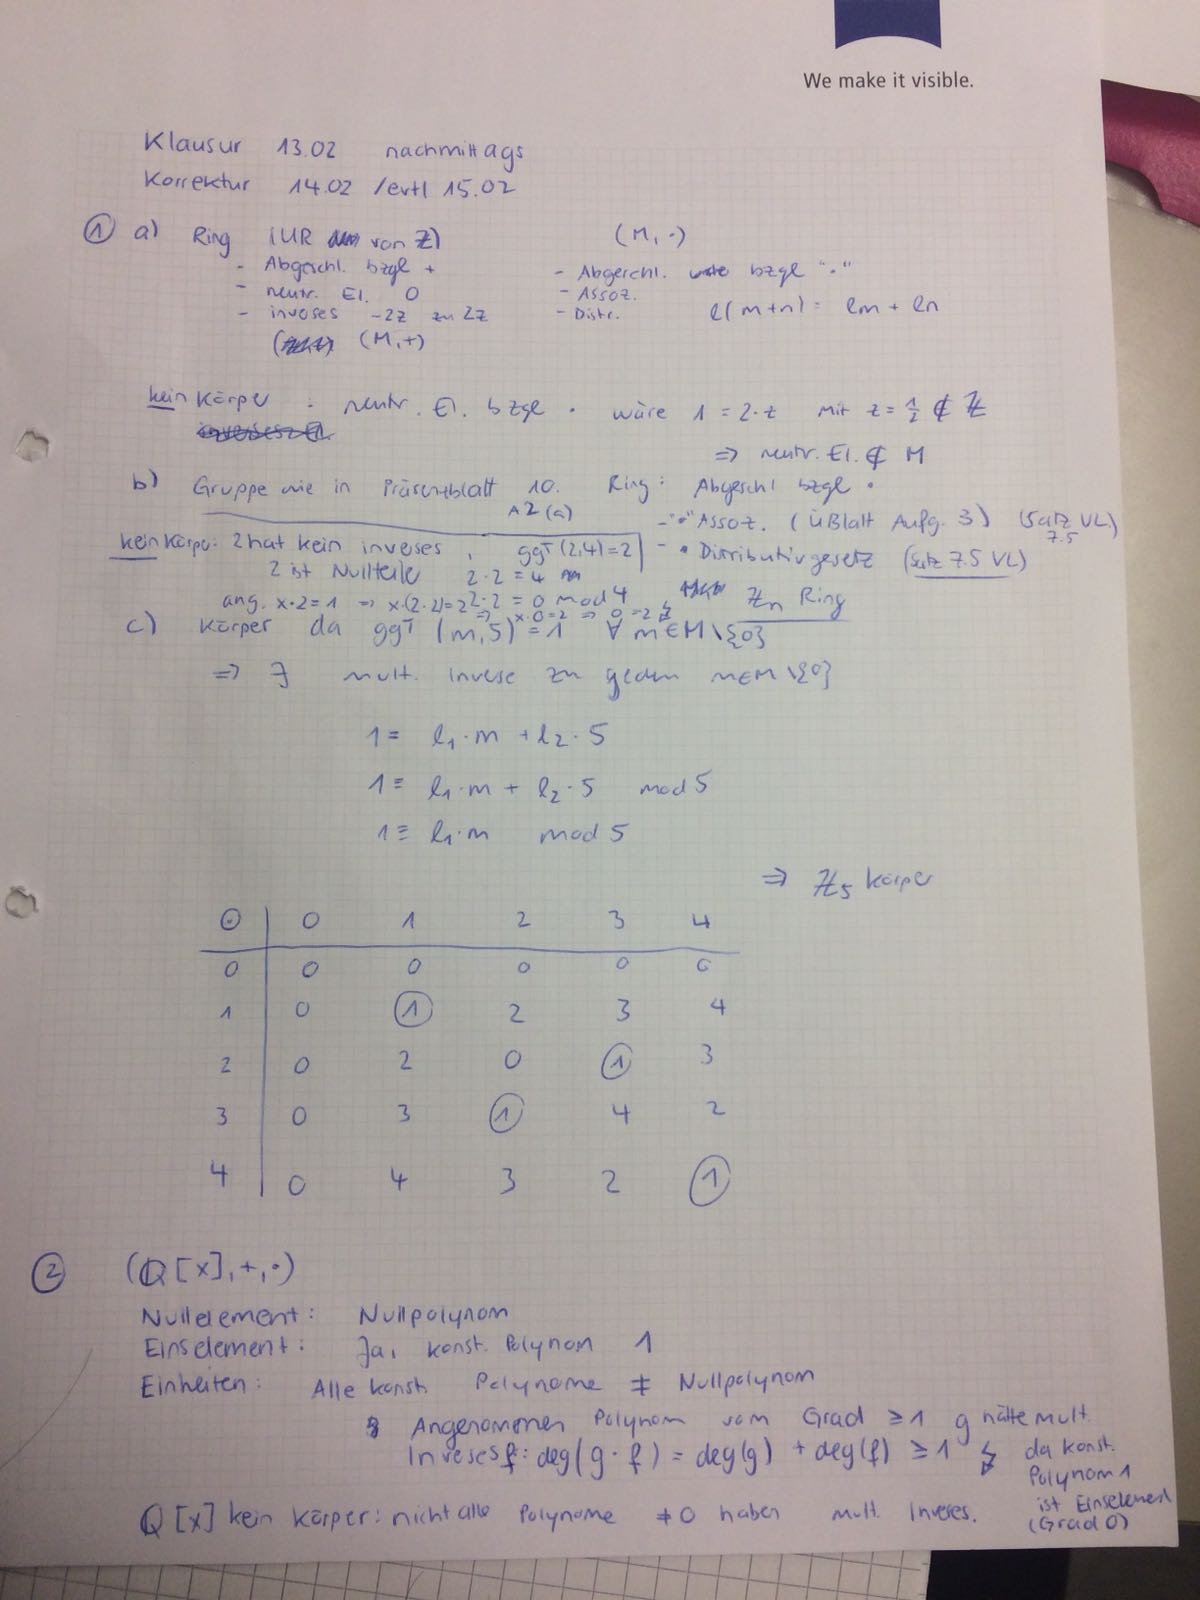 We make it visible.
Klausur 13.02 nachmittags
Korrektur 14.02 /evtl 15.02
① a) Ring (UR von ℤ) (M, ·)
- Abgeschl. bzgl + - Abgeschl. bzgl "·"
- neutr. El. 0 - Assoz.
- inveses -2z zu 2z - Distr. l(m+n) = lm + ln
(M,+)
kein Körper : neutr. El. bzgl · wäre 1 = 2·z mit z = 1/2 ∉ ℤ
⇒ neutr. El. ∉ M
b) Gruppe wie in Präsenzblatt 10. Ring: Abgeschl bzgl ·
A2(a) - "·" Assoz. (ÜBlatt Aufg. 3) (Satz VL) 7.5
kein Körper: 2 hat kein inveses, ggT(2,4)=2 - · Distributivgesetz (Satz 7.5 VL)
2 ist Nullteile 2·2 = 4
ang. x·2=1 ⇒ x·(2·2)=2 2·2 = 0 mod 4 ⇒ x·0=2 ⇒ 0=2 ↯ ℤn Ring
c) Körper da ggT (m,5) = 1 ∀ m∈M\{0}
⇒ ∃ mult. inverse zu jedem m∈M\{0}
1 = l₁·m + l₂·5
1 ≡ l₁·m + l₂·5 mod 5
1 ≡ l₁·m mod 5
⇒ ℤ₅ Körper
⊙ 0 1 2 3 4
0 0 0 0 0 0
1 0 1 2 3 4
2 0 2 0 1 3
3 0 3 1 4 2
4 0 4 3 2 1
② (ℚ[x],+,·)
Nullelement: Nullpolynom
Einselement: Ja, konst. Polynom 1
Einheiten: Alle konst Polynome ≠ Nullpolynom
Angenommen Polynom vom Grad ≥1 g hätte mult.
Inveses f: deg(g·f) = deg(g) + deg(f) ≥ 1 ↯ da konst.
Polynom 1
ist Einselement
ℚ[x] kein Körper: nicht alle Polynome ≠0 haben mult. Inveses. (Grad 0)